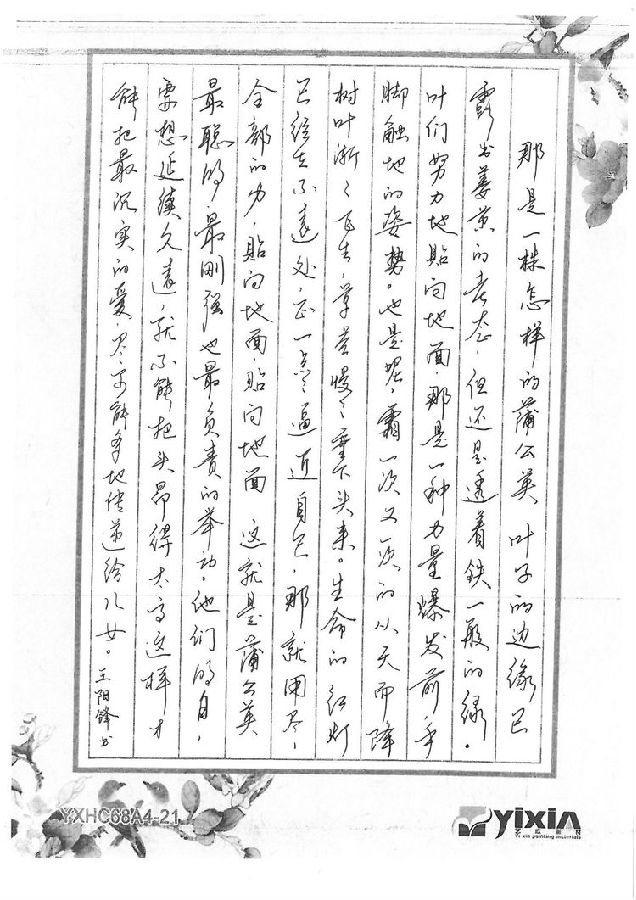 那是一株怎样的蒲公英 叶子的边缘已
露出萎黄的老态，但还是透着铁一般的绿。
叶们努力地贴向地面，那是一种力量爆发前手
脚触地的姿势。也是哩，霜一次又一次的从天而降
树叶渐渐飞走，草茎慢慢垂下头来。生命的红灯
已经在不远处，正一点点逼近自己，那就用尽
全部的力，贴向地面贴向地面 这就是蒲公英
最聪明，最刚强也最负责的举动，他们明白，
要想延续久远，就不能把头昂得太高这样才
能把最沉实的爱，尽可能多地传递给儿女。王阳锋书
YXHC68A4-21
yixin
Yi xin painting materials